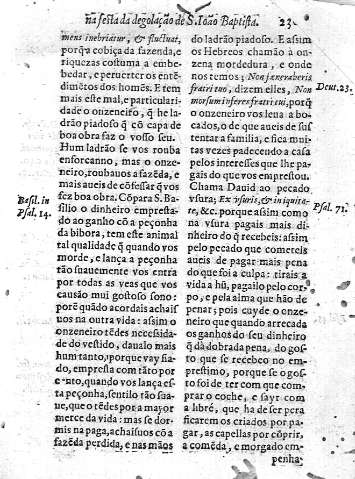 na festa da degolação de S. Ioão Baptista. 23
mens inebriatur, & fluctuat,
porq̃ a cobiça da fazenda, e
riquezas costuma a embe-
bedar, e peruerter os entẽ-
dimẽtos dos homẽs. E tem
mais este mal, e particulari-
dade o onzeneiro, q̃ he la-
drão piadoso q̃ cõ capa de
boa obra faz o vosso seu.
Hum ladrão se vos rouba
enforcanno, mas o onze-
neiro, roubauos a fazẽda, e
mais aueis de cõfessar q̃ vos
fez boa obra. Cõpara S. Ba-
silio o dinheiro empresta-
do ao ganho cõ a peçonha
da bibora, tem este animal
tal qualidade q̃ quando vos
morde, e lança a peçonha
tão suauemente vos entra
por todas as veas que vos
causão mui gostoso sono:
porẽ quãdo acordais achais
uos na outra vida: assim o
onzeneiro tẽdes necessida-
de do vestido, daualo mais
hum tanto, porque vay fia-
do, empresta com tãto por
cento, quando vos lança es-
ta peçonha, sentilo tão sua-
ue, que o tẽdes por a mayor
merce da vida: mas se dor-
mis na paga, achaisuos cõ a
fazẽda perdida, e nas mãos
Basil. in
Psal. 14.
do ladrão piadoso. E assim
os Hebreos chamão à on-
zena mordedura, e onde
nos temos; Non fœneraberis
fratri tuo, dizem elles, Non
morsum inferes fratri tui, porq̃
o onzeneiro vos leua a bo-
cados, o de que aueis de sus
tentar a familia, e fica mui-
tas vezes padecendo a casa
pelos interesses que lhe pa-
gais do que vos emprestou.
Chama Dauid ao pecado
vsura; Ex vsuris, & iniquita-
te, &c. porque assim como
na vsura pagais mais di-
nheiro do q̃ recebeis: assim
pelo pecado que cometeis
aueis de pagar mais pena
do que foi a culpa: tirais a
vida a hũ, pagailo pelo cor-
po, e pela alma que hão de
penar; pois cuyde o onze-
neiro que quando arrecada
os ganhos do seu dinheiro
q̃ dá dobrada pena, do gos-
to que se recebeo no em-
prestimo, porque se o gos-
to foi de ter com que com-
prar o coche, e sayr com
a libré, que ha de ser pera
ficarem os criados por pa-
gar, as capellas por cõprir,
a comẽda, e morgado em-
penha-
Deut. 23.
Psal. 71.